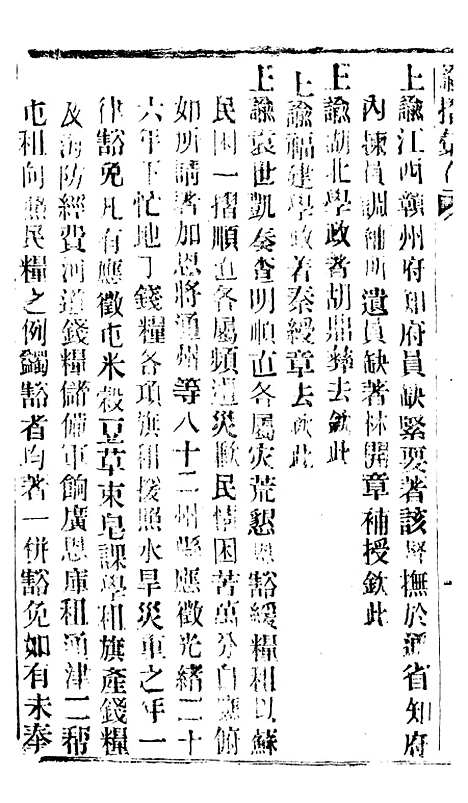 上諭江西贛州府知府員缺緊要著該督撫於通省知府
內揀員調補所遺員缺著林開章補授欽此
上諭湖北學政著胡鼎彝去欽此
上諭福建學政着秦綬章去欽此
上諭袁世凱奏查明順直各屬灾荒懇恩豁緩糧租以蘇
民困一摺順直各屬頻遭災歉民情困苦萬分自應俯
如所請著加恩將通州等八十二州縣應徵光緒二十
六年下忙地丁錢糧各項旗租援照水旱災重之年一
律豁免凡有應徵屯米穀豆草束皂課學租旗產錢糧
及海防經費河道錢糧儲備軍餉廣恩庫租通津二帮
屯租向照民糧之例蠲豁者均著一併豁免如有未奉